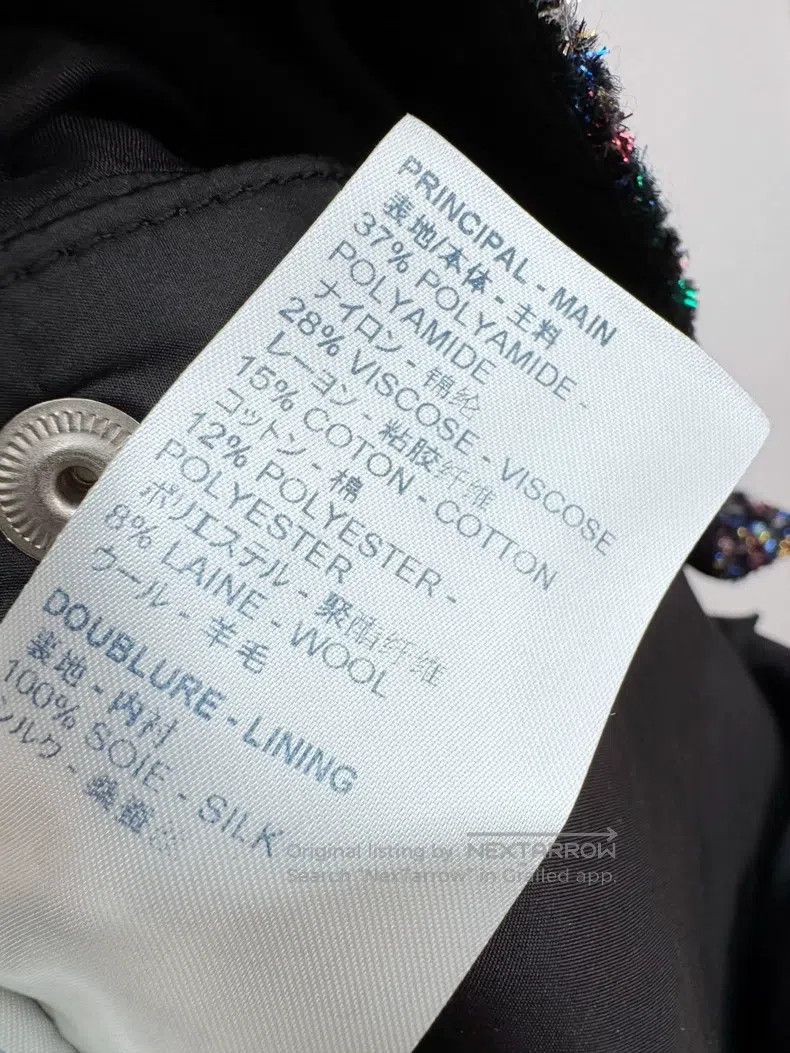 PRINCIPAL - MAIN
表地/本体 - 主料
37% POLYAMIDE -
POLYAMIDE
ナイロン - 锦纶
28% VISCOSE - VISCOSE
レーヨン - 粘胶纤维
15% COTON - COTTON
コットン - 棉
12% POLYESTER -
POLYESTER
ポリエステル - 聚酯纤维
8% LAINE - WOOL
ウール - 羊毛
DOUBLURE - LINING
裏地 - 内衬
100% SOIE - SILK
シルク - 桑蚕丝
Original listing by NEXTARROW
Search "NexTarrow" in Grailed app.